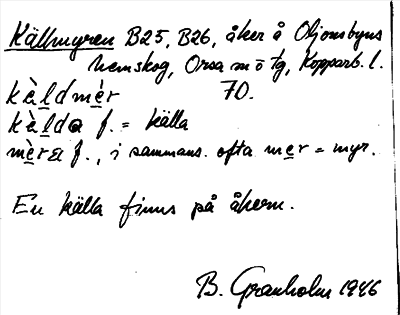 Källmyren B25, B26, åker å Oljonsbyns
hemskog, Orsa sn o tg, Kopparb. l.
kèldmèr 70.
kèlda f. = källa
mèra f., i sammans. ofta mer = myr.
En källa finns på åkern.
B. Granholm 1946